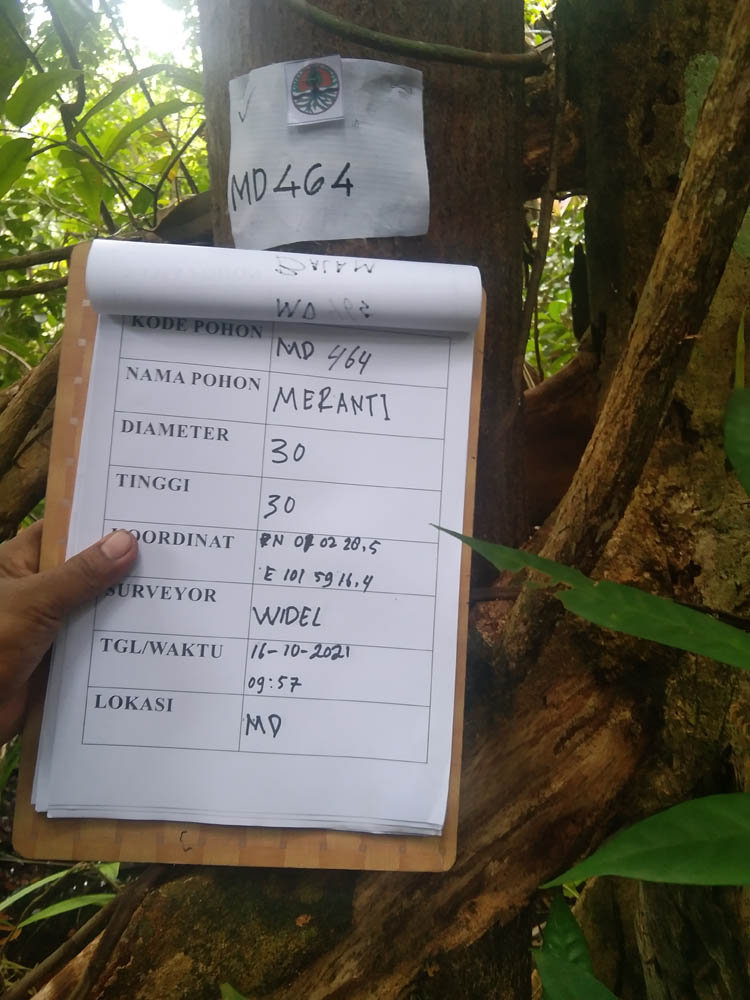 MD464
KODE POHON MD 464
NAMA POHON MERANTI
DIAMETER 30
TINGGI 30
KOORDINAT N 01 02 20,5
E 101 59 16,4
SURVEYOR WIDEL
TGL/WAKTU 16-10-2021
09:57
LOKASI MD